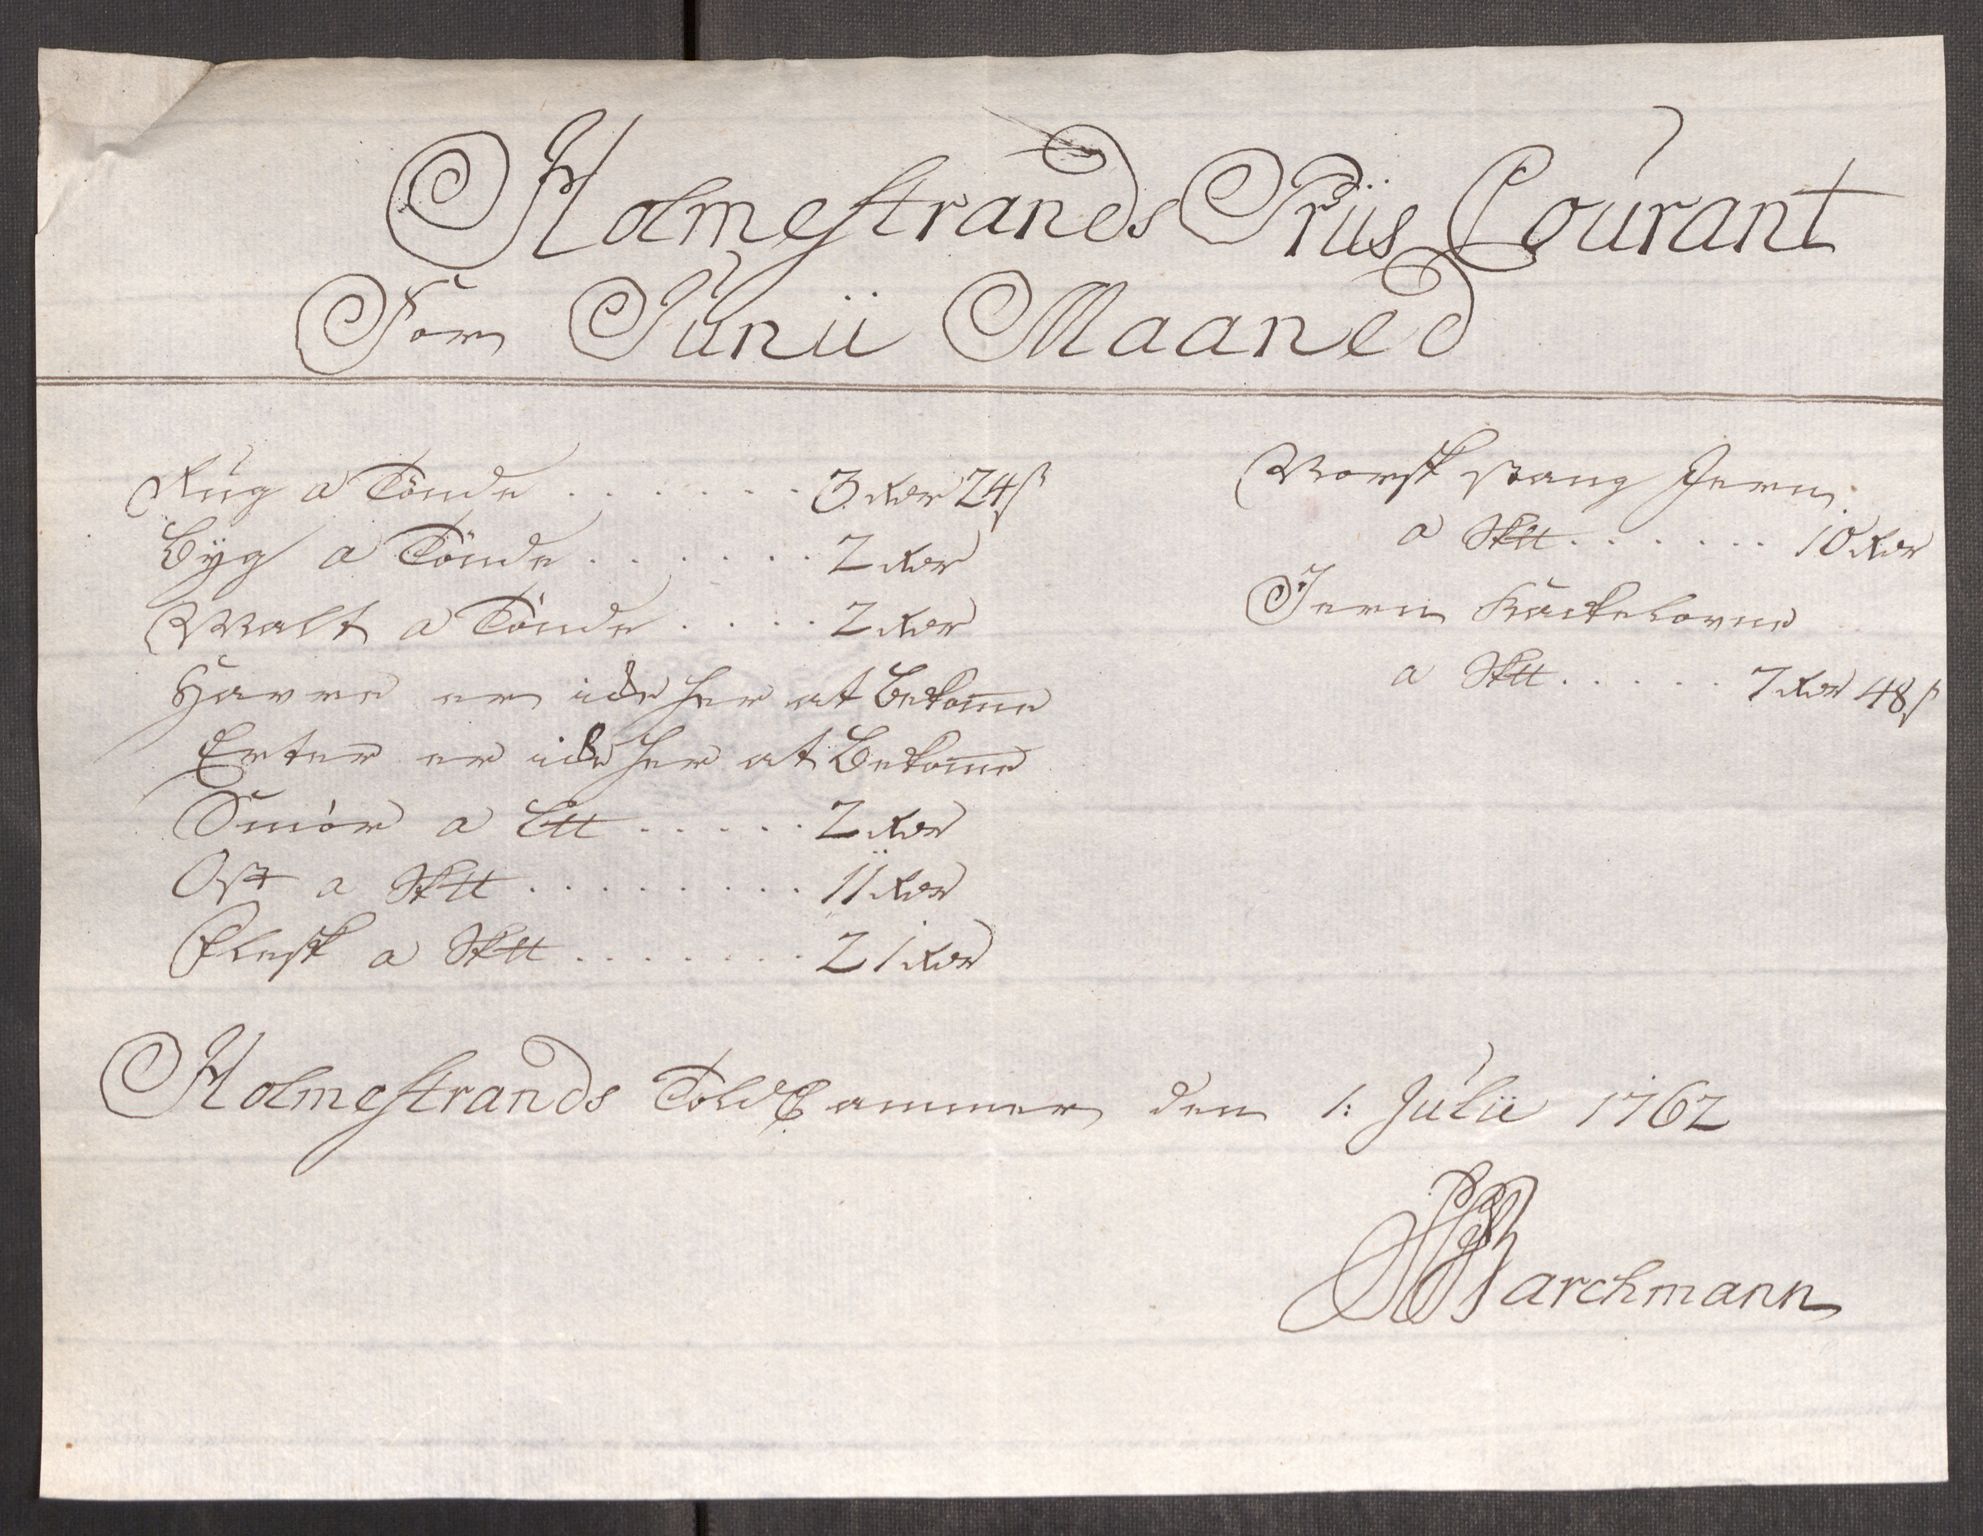 Holmestrands Priis Courant
For Junii Maaned
Rug a Tönde . . . . . . . 3 Rdr 24 ß
Byg a Tönde . . . . . . . 2 Rdr
Malt a Tönde . . . . . 2 Rdr
Havre er icke her at Bekom̅e
Erter er icke her at Bekom̅e
Smör a L℔ . . . . . . 2 Rdr
Ost a Sk℔ . . . . . . . . . 11 Rdr
Flesk a Sk℔ . . . . . . . . 21 Rdr
Norsk Stang Jern
a Sk℔ . . . . . . . 10 Rdr
Jern Kackelovne
a Sk℔ . . . . . . 7 Rdr 48 ß
Holmestrands Told Cammer den 1: Julii 1762
Barchmann